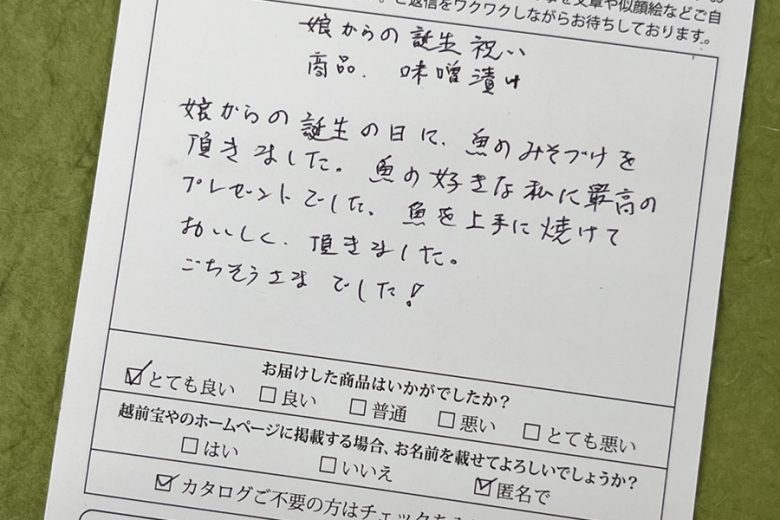 文章や似顔絵などご自
ご返信をワクワクしながらお待ちしております。
娘からの誕生祝い
商品. 味噌漬け
娘からの誕生の日に、魚のみそづけを
頂きました。魚の好きな私に最高の
プレゼントでした。魚を上手に焼けて
おいしく、頂きました。
ごちそうさまでした!
お届けした商品はいかがでしたか?
☑とても良い □良い □普通 □悪い □とても悪い
越前宝やのホームページに掲載する場合、お名前を載せてよろしいでしょうか?
□はい □いいえ ☑匿名で
☑カタログご不要の方はチェックを